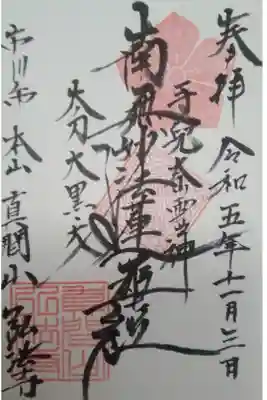 奉拝 令和五年十一月三日
手兒奈霊神
南無妙法蓮華経
太刀大黒天
市川市 本山 真間山 弘法寺